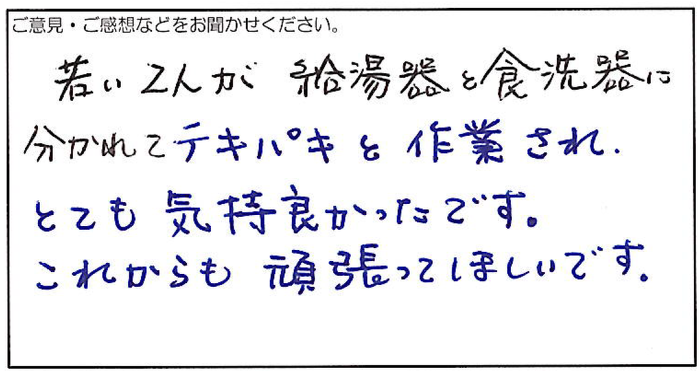 ご意見・ご感想などをお聞かせください。
若い2人が 給湯器と食洗器に
分かれてテキパキと作業され、
とても気持良かったです。
これからも頑張ってほしいです。